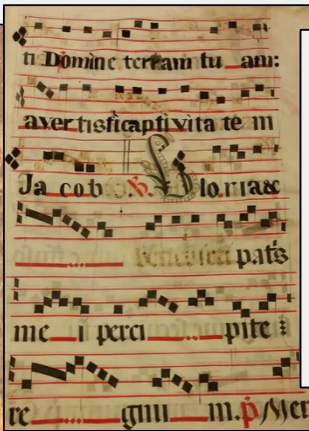 ti Domine terram tu am:
aver tisti captivita te m
Ja cob. ℟. Gloria &
Benedicti patris
me i perci pite :
re gnu m. ℟ Ver